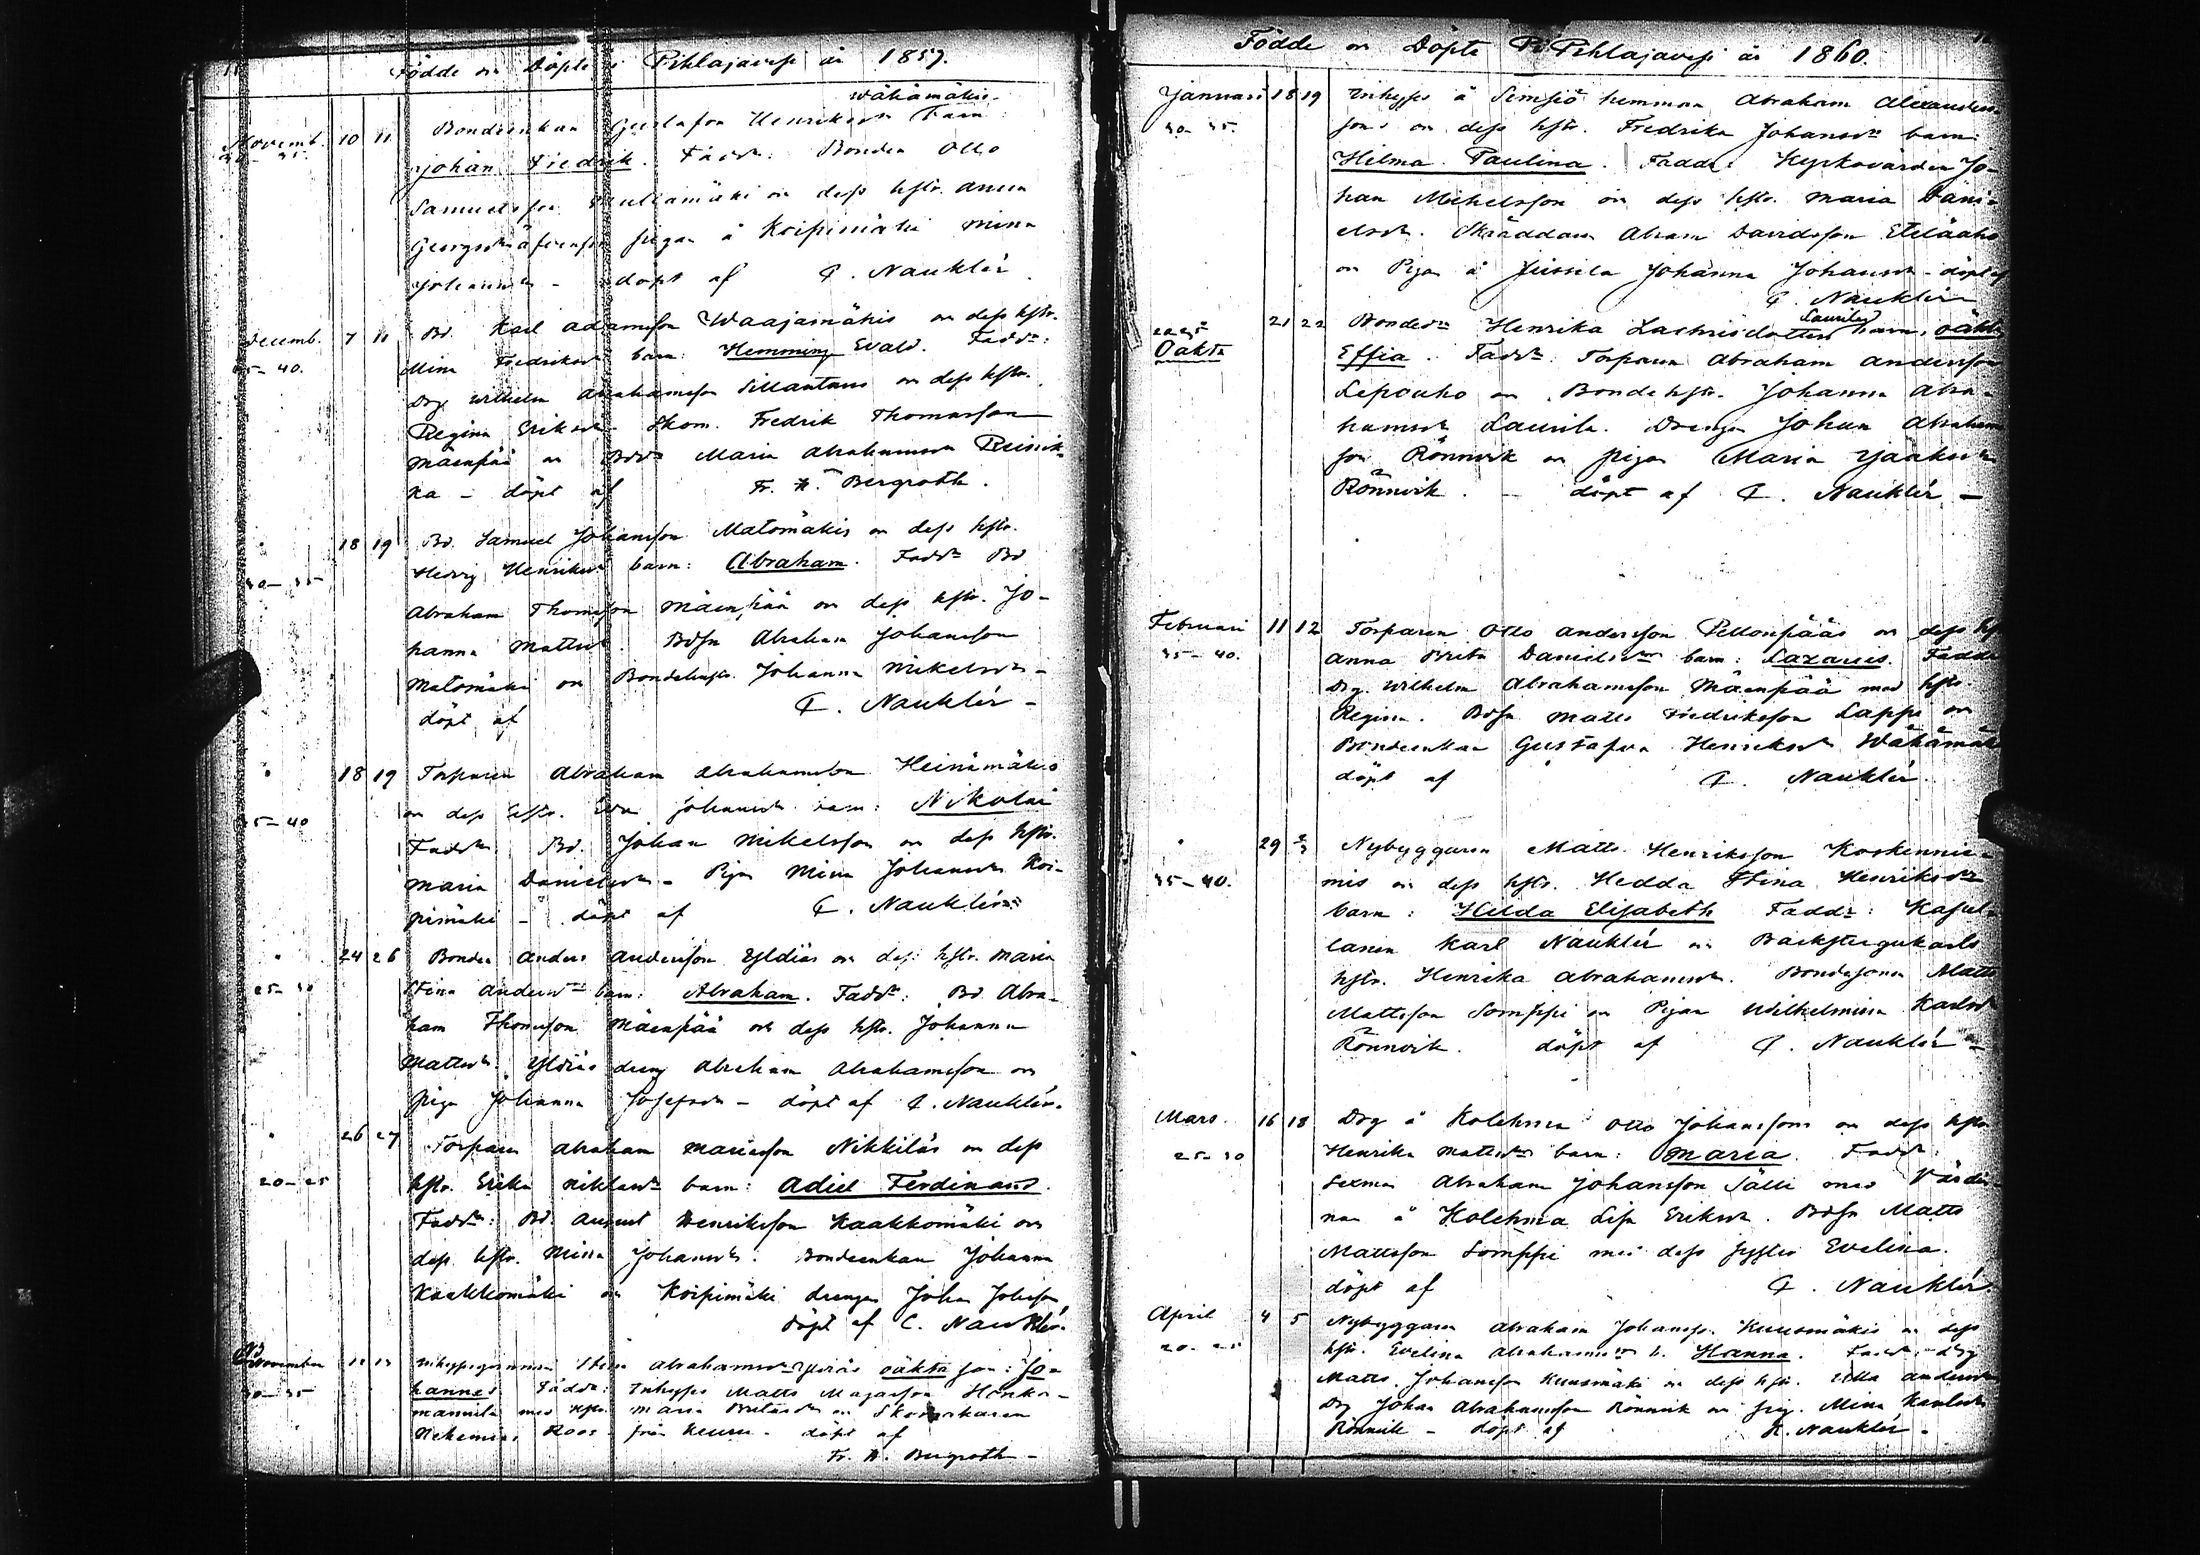 Födde o Döpte i Pihlajavesi år 1859.
Wähämäkis
Novemb. 10 11 Bondeenkan Gustafva Henriksdr barn:
30-35. Johan Fredrik. Faddr: Bonden Otto
Samuelsson Multamäki o dess hstr. Anna
Georgsdr pigan å Koipimäki Mina
Johansdr - döpt af C. Nauklér
Decemb. 7 11 Bd. Karl Adamsson Waajamäkis o dess hstr.
35-40. Mina Fredriksdr barn: Hemming Evald. Faddr:
Drg Wilhelm Abrahamsson Sillantaus o dess hstr.
Regina Eriksdr Skom. Fredrik Thomasson
Mäenpää o Bdr Maria Abrahamsdr Reinik-
ka - döpt af Fr. A. Bergroth.
" 18 19 Bd. Samuel Johansson Matomäkis o dess hstr.
30-35 Hedvig Henriksdr barn: Abraham. Faddr Bd
Abraham Thomsson Mäenpää o dess hstr. Jo-
hanna Mattsdr. Bdsn Abraham Johansson
Matomäki o Bondehstr. Johanna Mikelsdr -
döpt af C. Nauklér -
" 18 19 Torparen Abraham Abrahamsson Heinämäkis
35-40 o dess hstr. Eva Johansdr barn: Nikolai
Faddr. Bd. Johan Mikelsson o dess hstr.
Maria Danielsdr - Pigan Mina Johansdr Koi-
pimäki - döpt af C. Nauklér
" 24 26 Bonden Anders Andersson Yldiäs o dess hstr. Maria
25-30 Stina Andersdr barn: Abraham. Faddr: Bd. Abra-
ham Thomsson Mäenpää och dess hstr. Johanna
Mattsdr. Yldiäs dreng Abraham Abrahamsson o
piga Johanna Josefsdr - döpt af C. Nauklér.
" 26 27 Torparen Abraham Mariasson Nikkiläs o dess
20-25 hstr. Erika Niklasdr barn: Adiel Ferdinand.
Faddr: Bd. August Henriksson Kaakkomäki o
dess hstr. Mina Johansdr. Bondeenkan Johanna
Kaakkomäki o Koipimäki drengen Johan Johansson
döpt af C. Nauklér.
November 12 13 Inhyseqvinnan Stina Abrahamsdr oäkta son: Jo-
30-35 hannes Faddr: Inhyses Matts Majasson Honka-
mannila med hstr. Maria o Skomakaren
Nehemias Roos från Keuru. döpt af
Fr. A. Bergroth -
Födde o Döpte i Pihlajavesi år 1860.
Januari 18 19 Inhyses å Simsiö hemman Abraham Alexanders-
30-35. sons o dess hstr. Fredrika Johansdr barn:
Hilma Paulina. Faddr: Kyrkovärden Jo-
han Mikelsson o dess hstr. Maria Dani-
elsdr. Skräddaren Abram Davidsson Eteläaho
o Pigan å Jussila Johanna Johansdr - döpt af
C. Nauklér
22 25 21 22 Bondedr Henrika Zachrisdotters Laurilas barn, oäkta
Oäkta Effia. Faddr: Torparen Abraham Andersson
Lepouho o Bondehstr. Johanna Abra-
hamsdr Laurila. Drengen Johan Abraham
son Rönnvik o pigan Maria Jaaksdr
Rönnvik. - döpt af C. Nauklér -
Februari 11 12 Torparen Otto Andersson Pellonpääs o dess hs
35-40. Anna Brita Danielsdr barn: Lazarus. Faddr
Drg. Wilhelm Abrahamsson Mäenpää med hstr.
Regina. Bdsn Matts Fredriksson Lappi o
Bondeenkan Gustafva Henriksdr Wähämäk
döpt af C. Nauklér.
" 29 2/3 Nybyggaren Matts Henriksson Koskennie-
35-40. mis o dess hstr. Hedda Stina Henriksdr
barn: Hilda Elisabeth Faddr: Kapel-
lanen Karl Nauklér o Backstugukarls
hstr. Henrika Abrahamsdr. Bondesonen Matts
Mattsson Somppi o Pigan Wilhelmina Karlsdr
Rönnvik. döpt af C. Nauklér -
Mars. 16 18 Drg å Kolehma Otto Johanssons o dess hstr
25-30 Henrika Mattsdr barn: Maria. Faddr:
Sexman Abraham Johansson Sälli med Värdin-
nan å Kolehma Lisa Eriksdr. Bdsn Matts
Mattsson Somppi med dess syster Evelina.
döpt af C. Nauklér.
April 4 5 Nybyggaren Abraham Johanss. Kuusmäkis o dess
20-25 hstr. Evelina Abrahamsdr b. Hanna. Faddr: drg
Matts Johansson Kuusmäki o dess hstr. Ulla Andersdr
Drg Johan Abrahamsson Rönnvik o pig. Mina Karlsdr
Rönnvik - döpt af K. Nauklér -